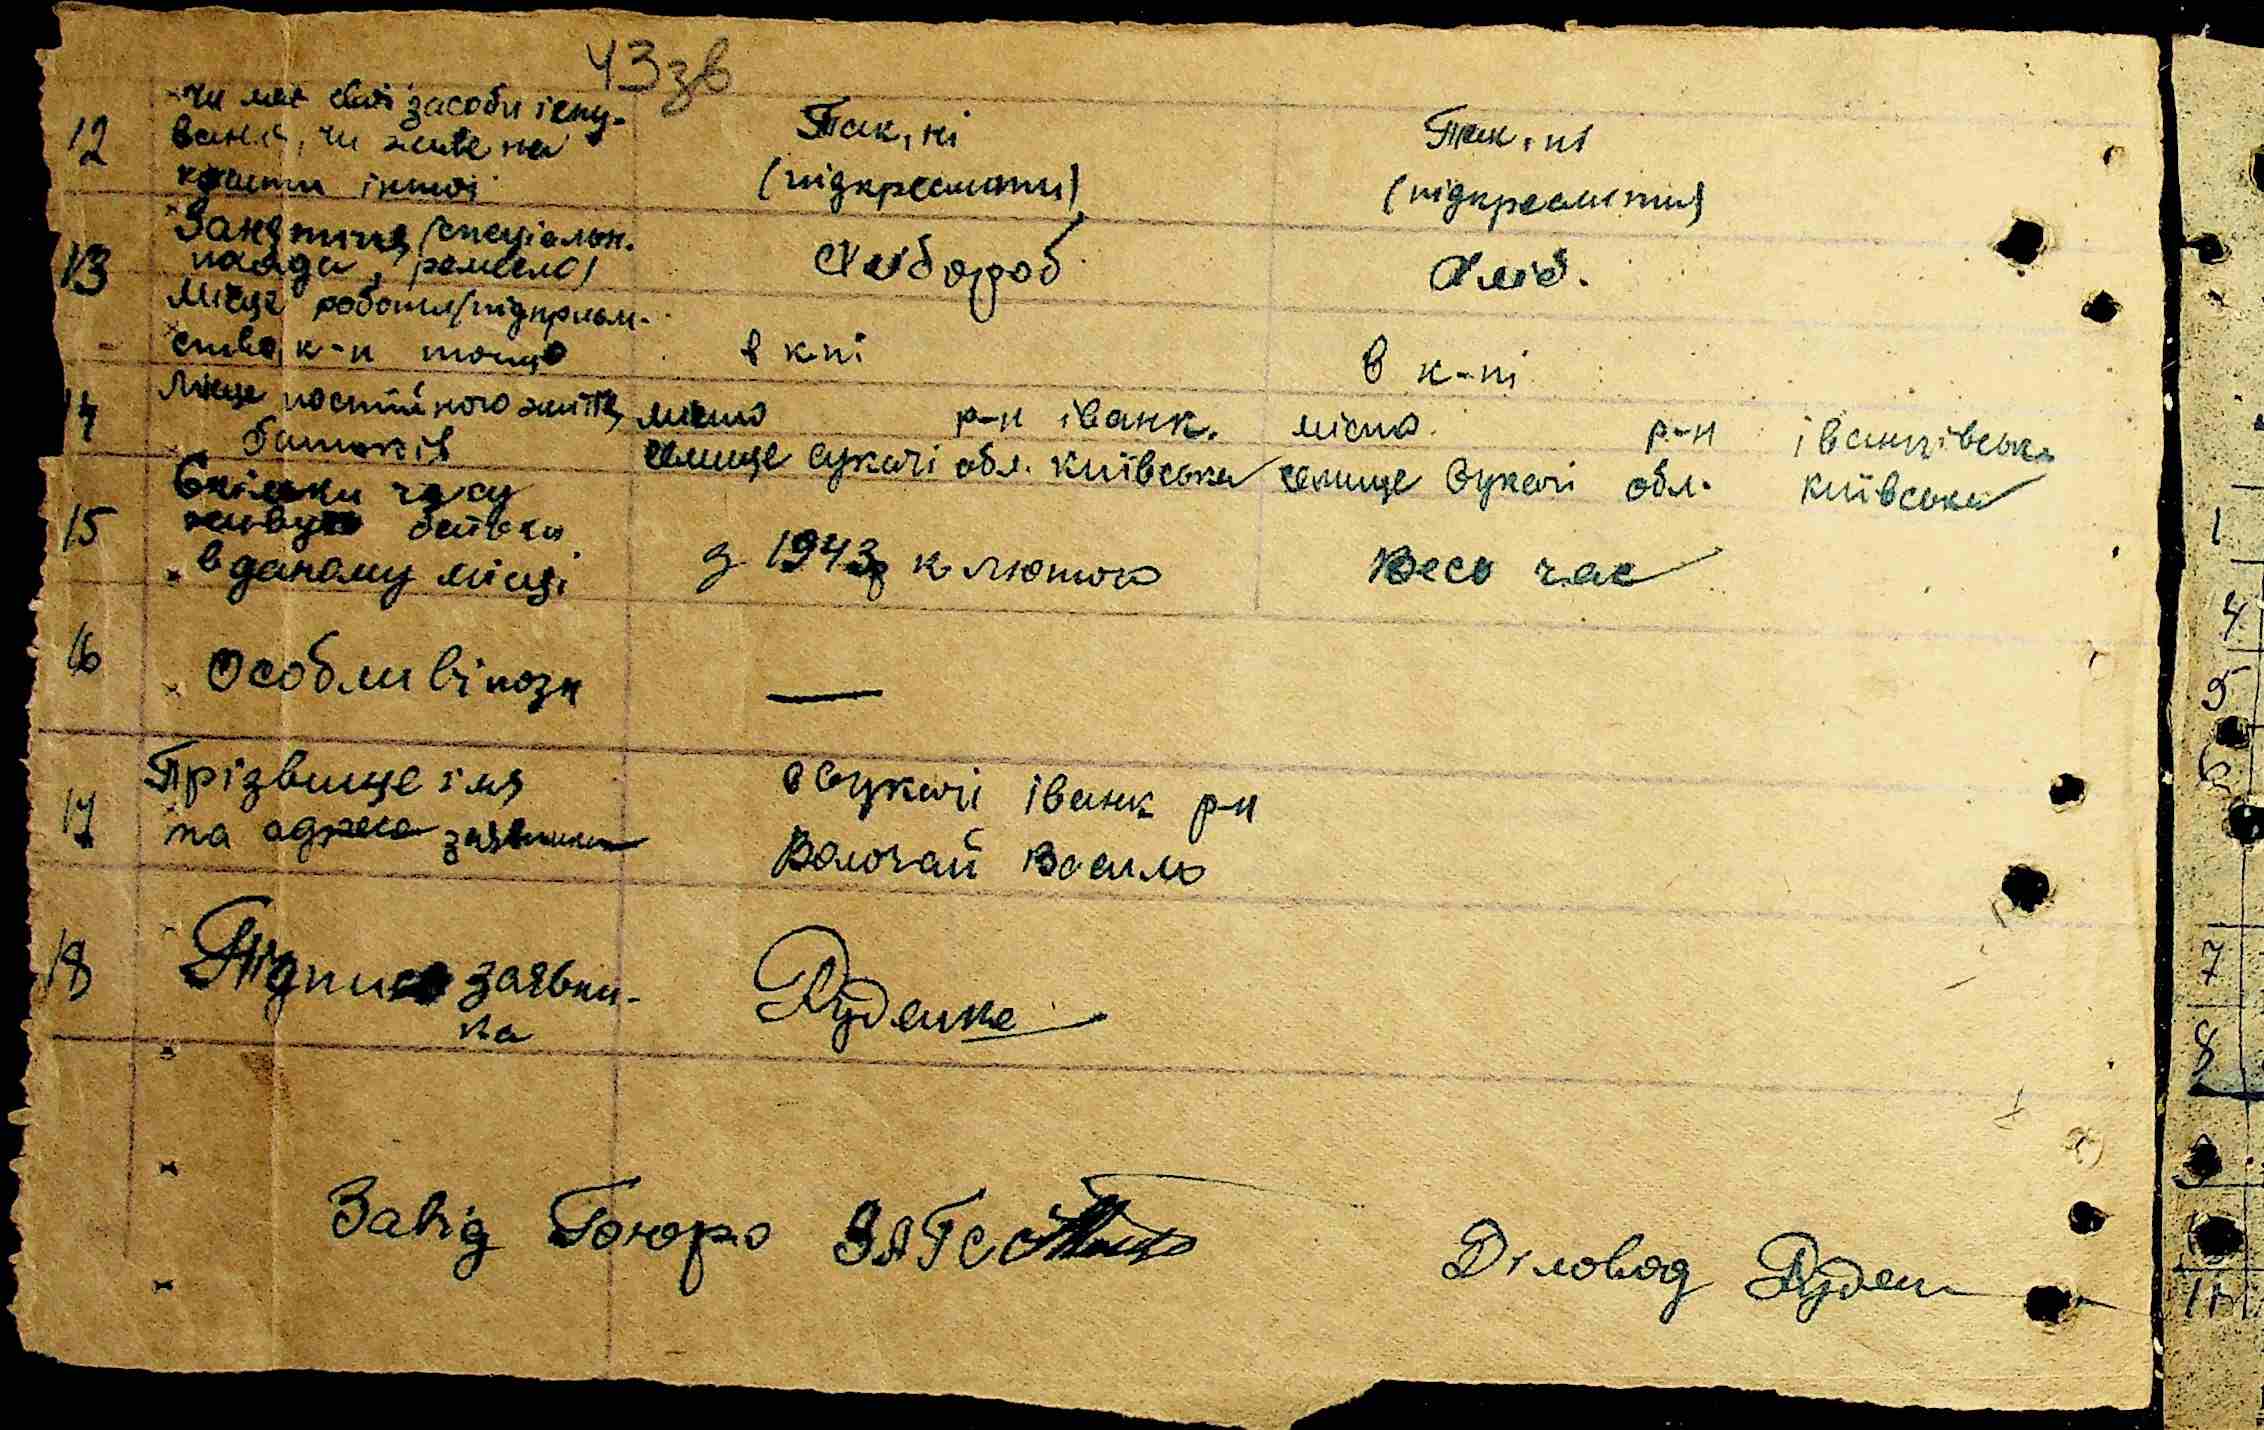 43зв
12 Чи має свої засоби існу-
вання, чи живе на
кошти іншої
Так, ні
(підкреслити)
Так, ні
(підкреслити)
13 Заняття (спеціальн.
посада, ремесло)
Хлібороб
Хліб.
Місце роботи (підприєм-
ство, к-п тощо
в к-пі
в к-пі
14 Місце постійного життя
батьків
місто р-н іванк.
селище Сукачі обл. Київська
місто р-н іванківськ.
селище Сукачі обл. Київська
15 Скільки часу
живуть батьки
в даному місці
з 1943 р. лютого
Весь час
16 Особливі позн
—
17 Прізвище імя
та адреса заявника
с Сукачі іванк р-н
Волочай Василь
18 Підпис заявни-
ка
Руденко
Завід Бюро ЗАГС
Діловод Руден
1
4
5
6
7
8
9
11